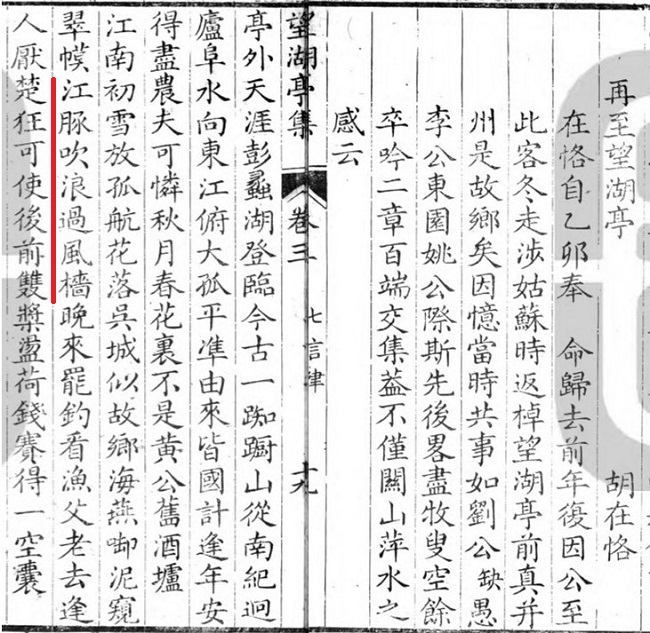 再至望湖亭 胡在恪
在恪自乙卯奉 命歸去前年復因公至
此客冬走涉姑蘇時返棹望湖亭前真幷
州是故鄉矣因憶當時共事如劉公缺愚
李公東園姚公際斯先後畧盡牧叟空餘
卒吟二章百端交集葢不僅關山萍水之
感云
望湖亭集 卷三 七言律 十九
亭外天涯彭蠡湖登臨今古一踟躕山從南紀迥
廬阜水向東江俯大孤平準由來皆國計逢年安
得盡農夫可憐秋月春花裏不是黃公舊酒壚
江南初雪放孤航花落吳城似故鄉海燕啣泥窺
翠幙江豚吹浪過風檣晚來罷釣看漁父老去逢
人厭楚狂可使後前雙槳盪荷錢賽得一空囊